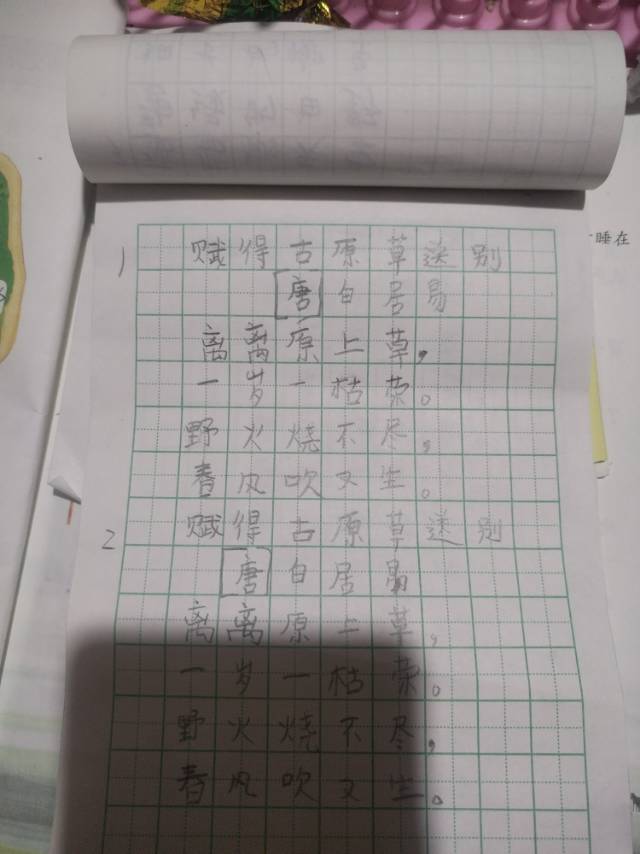 1 赋得古原草送别
唐 白居易
离离原上草，
一岁一枯荣。
野火烧不尽，
春风吹又生。
2 赋得古原草送别
唐 白居易
离离原上草，
一岁一枯荣。
野火烧不尽，
春风吹又生。
睡在